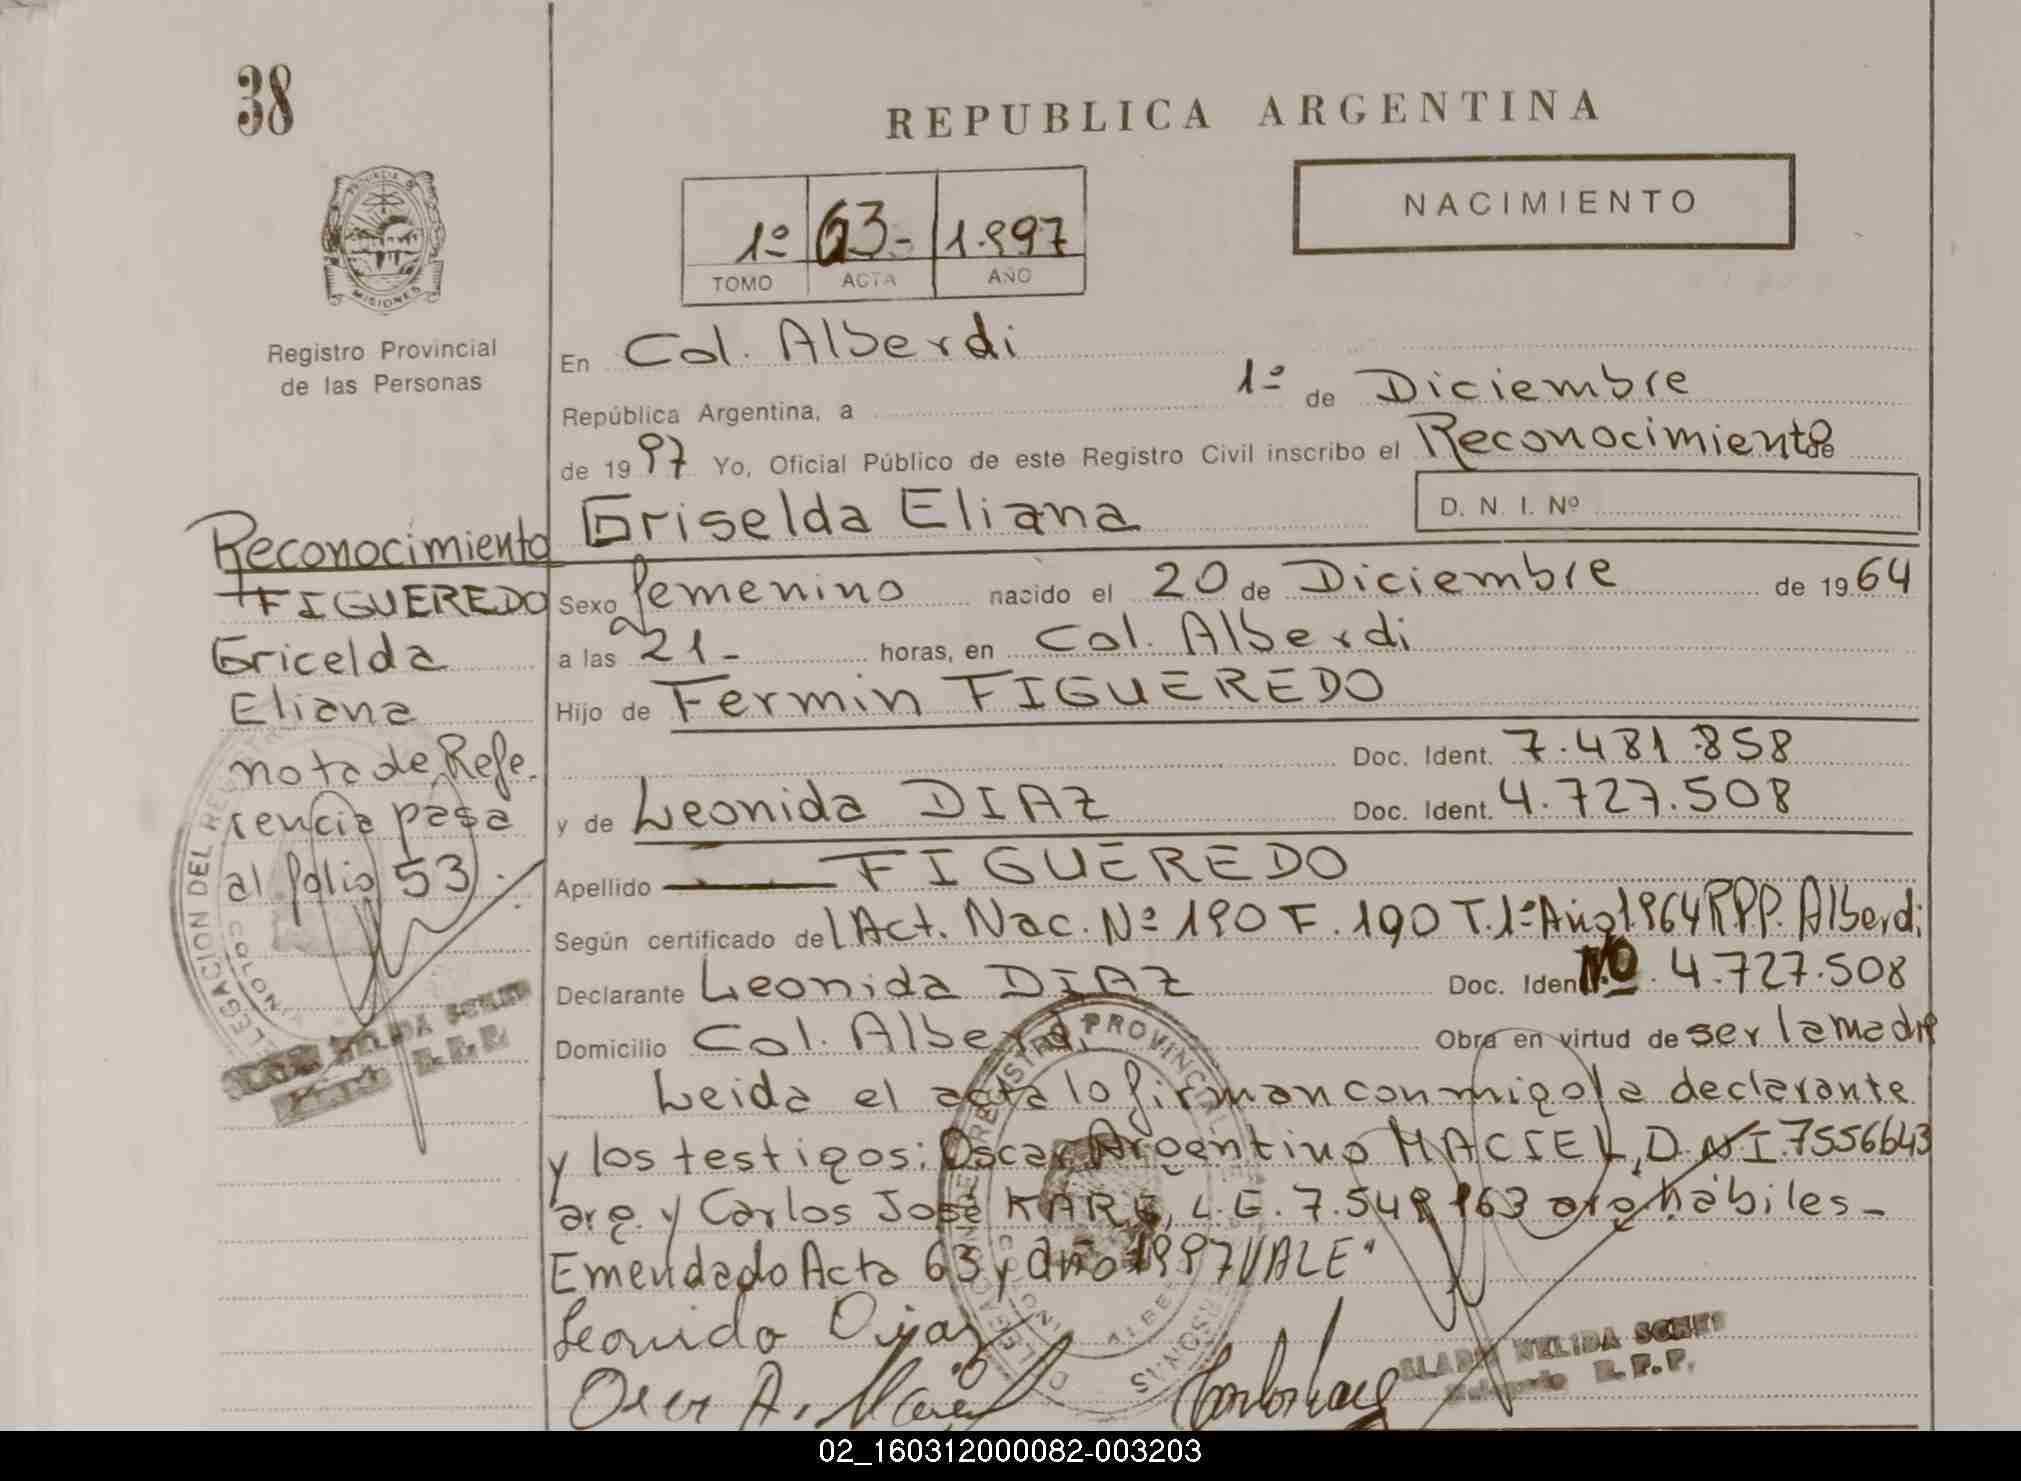 38
REPUBLICA ARGENTINA
NACIMIENTO
PROVINCIA DE
MISIONES
1º 63- 1.997
TOMO ACTA AÑO
Registro Provincial
de las Personas
En Col. Alberdi
República Argentina, a 1º de Diciembre
de 1997 Yo, Oficial Público de este Registro Civil inscribo el Reconocimiento de
D. N. I. Nº
Griselda Eliana
Sexo femenino nacido el 20 de Diciembre de 1964
a las 21- horas, en Col. Alberdi
Hijo de Fermin FIGUEREDO
Doc. Ident. 7.481.858
y de Leonida DIAZ Doc. Ident. 4.727.508
Apellido FIGUEREDO
Según certificado del Act. Nac. Nº 190 F. 190 T.1º Año 1964 RPP. Alberdi
Declarante Leonida DIAZ Doc. Ident Nº. 4.727.508
Domicilio Col. Alberdi Obra en virtud de ser la madre
Leida el acta lo firman conmigo la declarante
y los testigos: Oscar Argentino MACIEL, D.N.I. 7556643
arg. y Carlos José L.E. 7.549 163 arg hábiles-
Emendado Acta 63 y año 1997 VALE"
Leonida Diaz
Oscar A. Maciel
GLADY NELIDA
R.P.P.
REGISTRO PROVINCIAL DE LAS PERSONAS
DELEGACION
COLONIA ALBERDI
Reconocimiento
FIGUEREDO
Gricelda
Eliana
nota de Refe.
rencia pasa
al folio 53.
DELEGACION DEL REGISTRO
COLONIA
NELIDA
R.P.P.
02_160312000082-003203